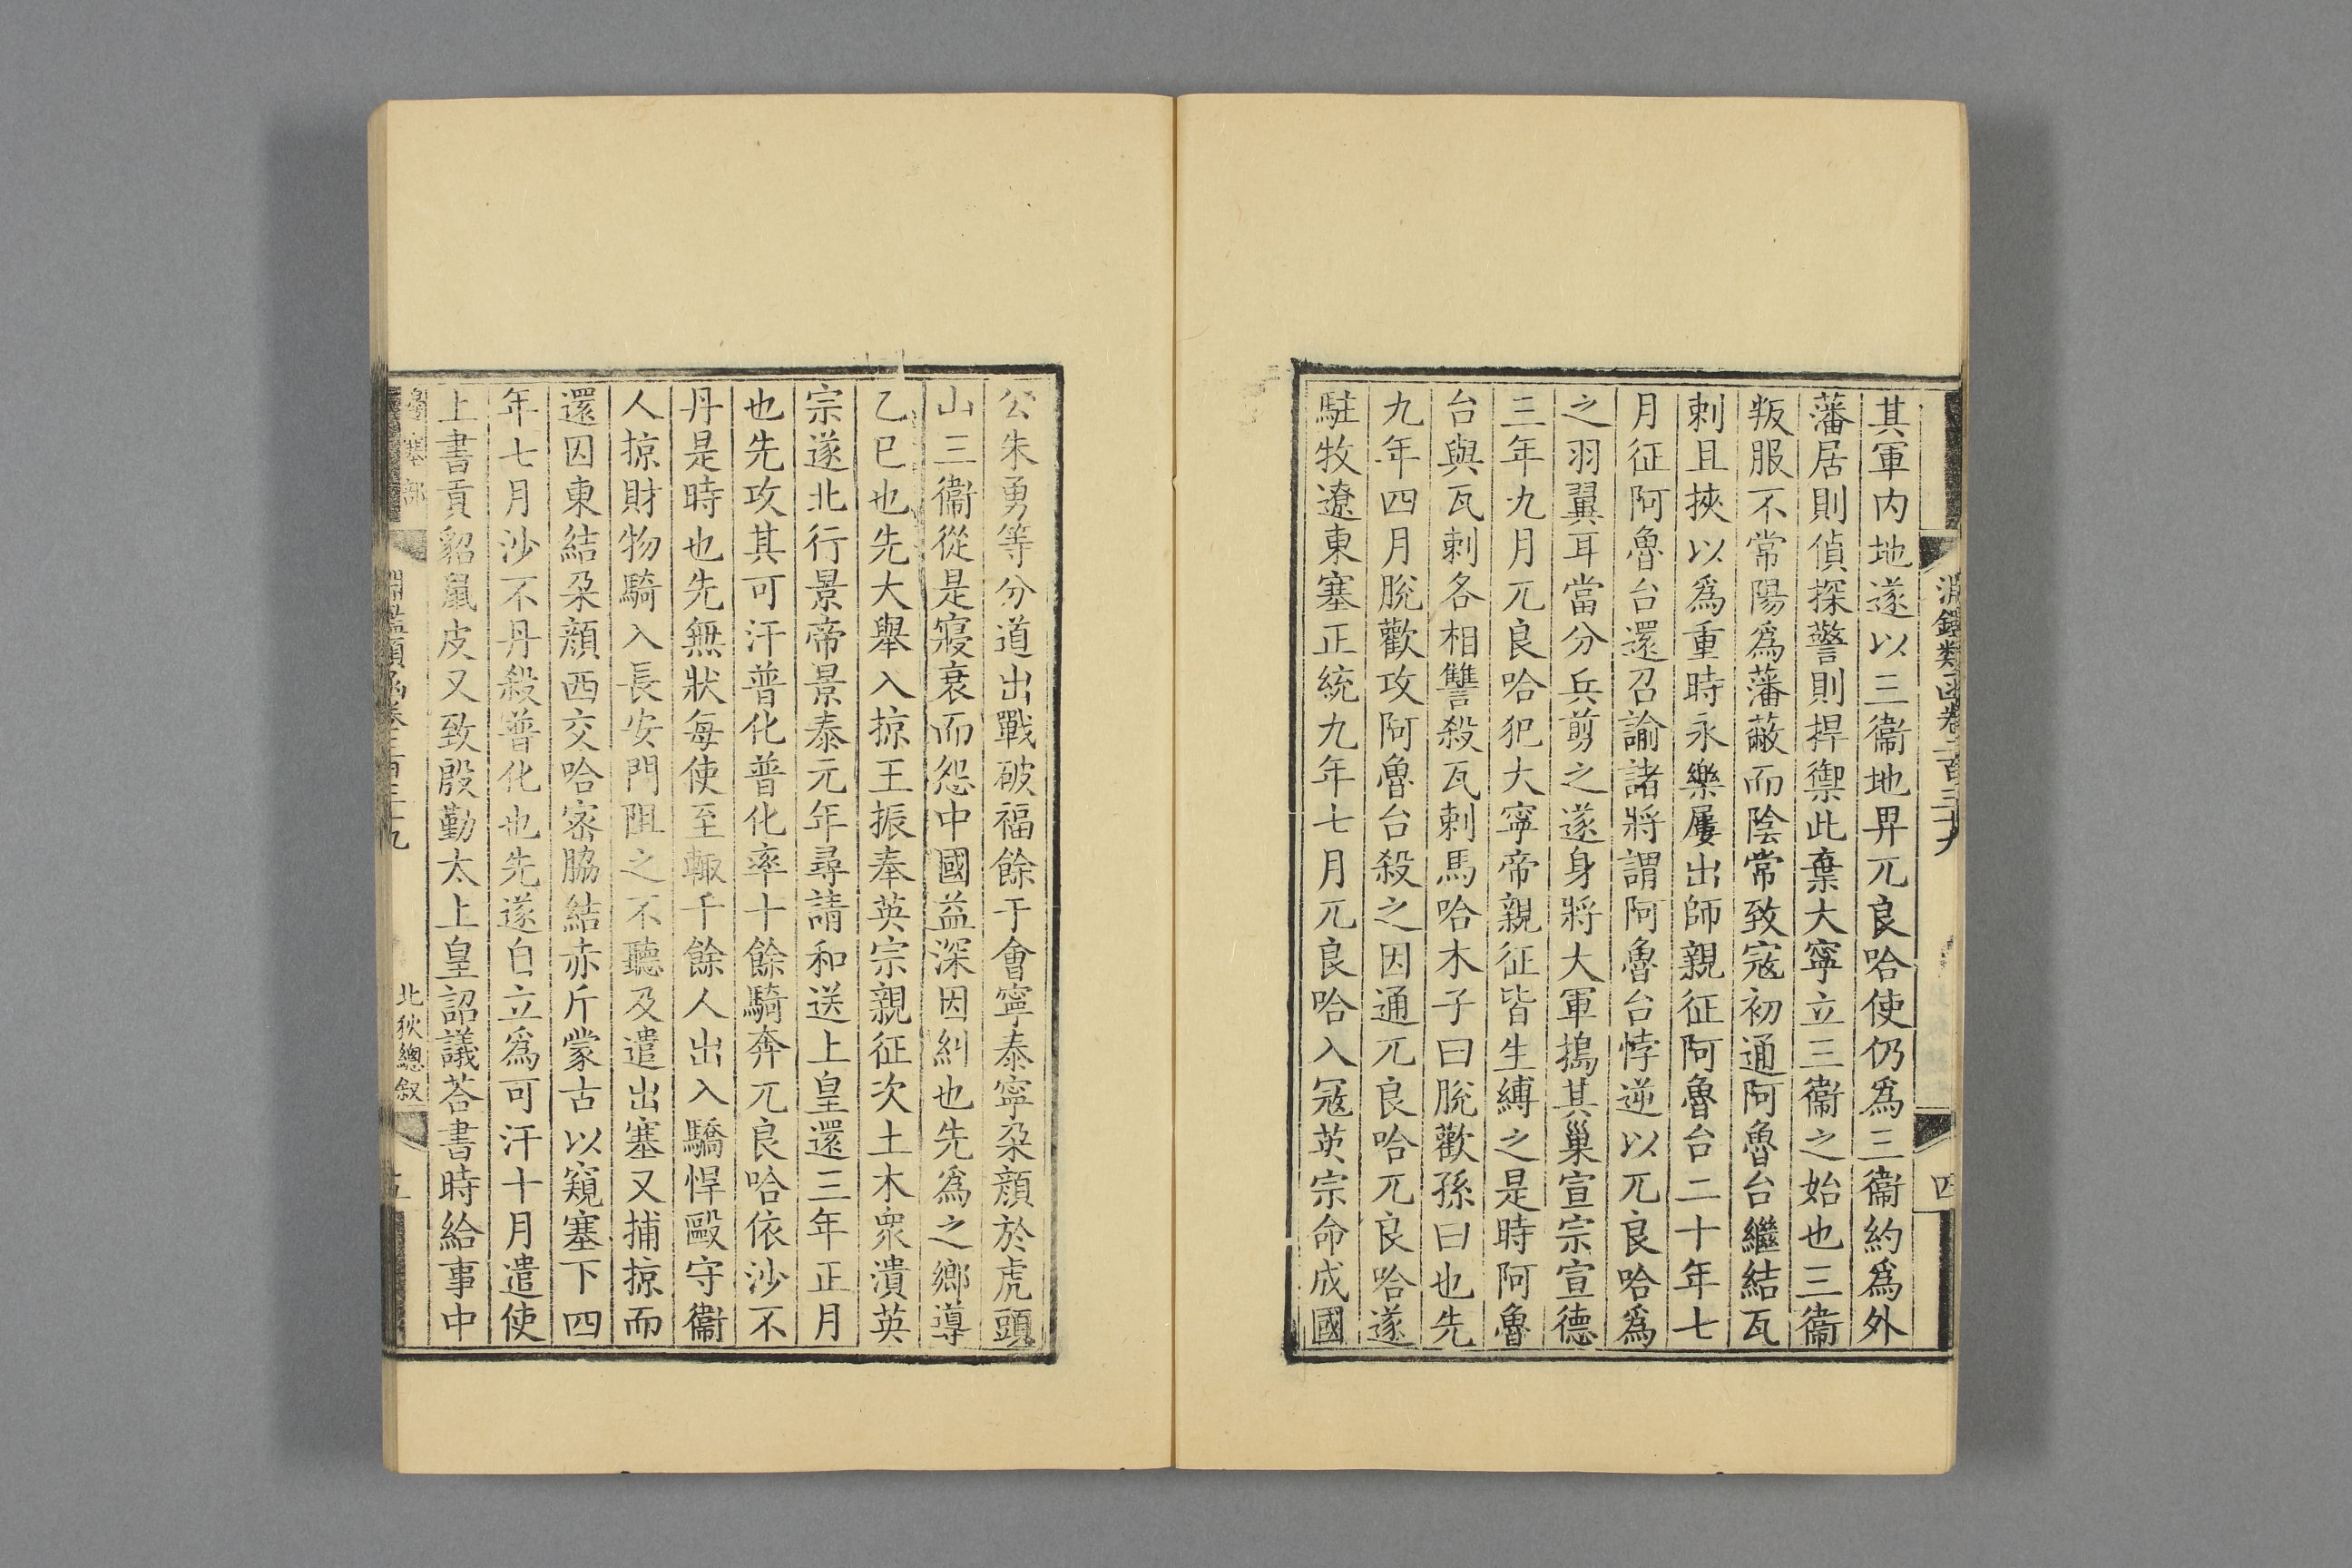 其軍内地遂以三衞地畀兀良哈使仍爲三衞約爲外
藩居則偵探警則捍禦此棄大寧立三衞之始也三衞
叛服不常陽爲藩蔽而陰常致寇初通阿魯台繼結瓦
剌且挾以爲重時永樂屢出師親征阿魯台二十年七
月征阿魯台還召諭諸將謂阿魯台悖逆以兀良哈爲
之羽翼耳當分兵剪之遂身將大軍搗其巢宣宗宣德
三年九月兀良哈犯大寧帝親征皆生縛之是時阿魯
台與瓦剌各相讐殺瓦剌馬哈木子曰脫歡孫曰也先
九年四月脫歡攻阿魯台殺之因通兀良哈兀良哈遂
駐牧遼東塞正統九年七月兀良哈入寇英宗命成國
淵鑑類函卷二百三十九
四
公朱勇等分道出戰破福餘于會寧泰寧朵顏於虎頭
山三衞從是寢衰而怨中國益深因糾也先爲之鄉導
乙巳也先大舉入掠王振奉英宗親征次土木衆潰英
宗遂北行景帝景泰元年尋請和送上皇還三年正月
也先攻其可汗普化普化率十餘騎奔兀良哈依沙不
丹是時也先無狀每使至輙千餘人出入驕悍毆守衞
人掠財物騎入長安門阻之不聽及遣出塞又捕掠而
還囚東結朵顏西交哈密脇結赤斤蒙古以窺塞下四
年七月沙不丹殺普化也先遂自立爲可汗十月遣使
上書貢貂鼠皮又致殷勤太上皇詔議荅書時給事中
邊塞部
淵鑑類函卷二百三十九
北狄總叙
五